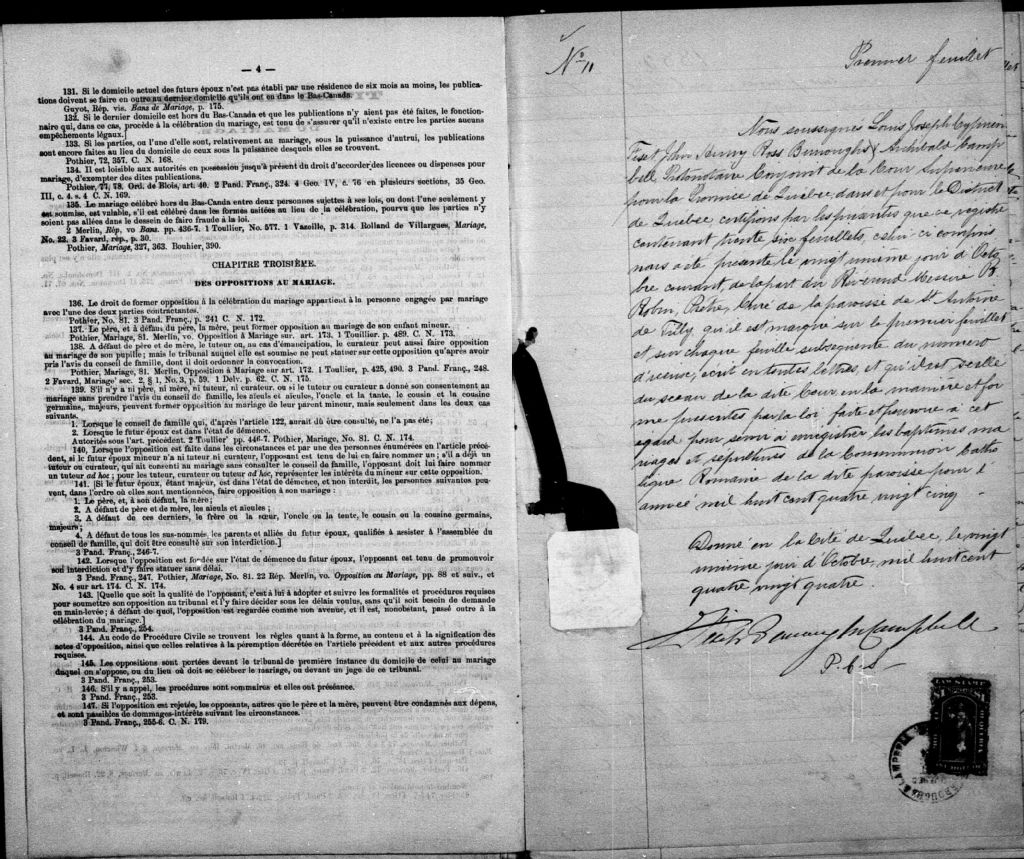 — 4 —
131. Si le domicile actuel des futurs époux n'est pas établi par une résidence de six mois au moins, les publica-
tions doivent se faire en outre au dernier domicile qu'ils ont eu dans le Bas-Canada.
Guyot, Rép. vis. Bans de Mariage, p. 175.
132. Si le dernier domicile est hors du Bas-Canada et que les publications n'y aient pas été faites, le fonction-
naire qui, dans ce cas, procède à la célébration du mariage, est tenu de s'assurer qu'il n'existe entre les parties aucuns
empêchements légaux.
133. Si les parties, ou l'une d'elle sont, relativement au mariage, sous la puissance d'autrui, les publications
sont encore faites au lieu du domicile de ceux sous la puissance desquels elles se trouvent.
Pothier, 72, 357. C. N. 168.
134. Il est loisible aux autorités en possession jusqu'à présent du droit d'accorder des licences ou dispenses pour
mariage, d'exempter des dites publications.
Pothier, 77, 78. Ord. de Blois, art. 40. 2 Pand. Franç., 324. 4 Geo. IV, c. 76 en plusieurs sections, 35 Geo.
III, c. 4. s. 4 C. N. 169.
135. Le mariage célébré hors du Bas-Canda entre deux personnes sujettes à ses lois, ou dont l'une seulement y
est soumise, est valable, s'il est célébré dans les formes usitées au lieu de la célébration, pourvu que les parties n'y
soient pas allées dans le dessein de faire fraude à la loi.
2 Merlin, Rép. vo Bans. pp. 436-7. 1 Toullier, No. 577. 1 Vazeille, p. 314. Rolland de Villargues, Mariage,
No. 22. 3 Favard, rép., p. 30.
Pothier, Mariage, 327, 363. Bouhier, 390.
CHAPITRE TROISIÈME.
DES OPPOSITIONS AU MARIAGE.
136. Le droit de former opposition à la célébration du mariage appartient à la personne engagée par mariage
avec l'une des deux parties contractantes.
Pothier, No. 81. 3 Pand. Franç., p. 241 C. N. 172.
137. Le père, et à défaut du père, la mère, peut former opposition au mariage de son enfant mineur.
Pothier, Mariage, 81. Merlin, vo. Opposition à Mariage sur. art. 173. 1 Touillier. p. 489. C. N. 173.
138. A défaut de père et de mère, le tuteur, ou, au cas d'émancipation, le curateur peut aussi faire opposition
au mariage de son pupille; mais le tribunal auquel elle est soumise ne peut statuer sur cette opposition qu'après avoir
pris l'avis du conseil de famille, dont il doit ordonner la convocation.
Pothier, Mariage, 81. Merlin, Opposition à Mariage sur art. 172. 1 Toulier, p. 425, 490. 3 Pand. Franç., 248.
2 Favard, Mariage' sec. 2, § 1, No. 3, p. 59. 1 Delv. p. 62. C. N. 175.
139. S'il n'y a ni père, ni mère, ni tuteur, ni curateur. ou si le tuteur ou curateur a donné son consentement au
mariage sans prendre l'avis du conseil de famille, les aïeuls et aïeules, l'oncle et la tante, le cousin et la cousine
germains, majeurs, peuvent former opposition au mariage de leur parent mineur, mais seulement dans les deux cas
suivants.
1. Lorsque le conseil de famille qui, d'après l'article 122, aurait dû être consulté, ne l'a pas été;
2. Lorsque le futur époux est dans l'état de démence.
Autorités sous l'art. précédent. 2 Toullier' pp. 446-7. Pothier, Mariage, No. 81. C. N. 174.
140. Lorsque l'opposition est faite dans les circonstances et par une des personnes énumérées en l'article précé-
dent, si le futur époux mineur n'a ni tuteur ni curateur, l'opposant est tenu de lui en faire nommer un; s'il a déjà un
tuteur ou curateur, qui ait consenti au mariage sans consulter le conseil de famille, l'opposant doit lui faire nommer
un tuteur ad hoc; pour les tuteur, curateur ou tuteur ad hoc, représenter les intérêts du mineur sur cette opposition.
141. [Si le futur époux, étant majeur, est dans l'état de démence, et non interdit, les personnes suivantes peu-
vent, dans l'ordre où elles sont mentionnées, faire opposition à son mariage :
1. Le père, et, à son défaut, la mère;
2. A défaut de père et de mère, les aïeuls et aïeules;
3. A défaut de ces derniers, le frère ou la sœur, l'oncle ou la tante, le cousin ou la cousine germains,
majeurs;
4. A défaut de tous les sus-nommés, les parents et alliés du futur époux, qualifiés à assister à l'assemblée du
conseil de famille, qui doit être consulté sur son interdiction.]
3 Pand. Franç., 246-7.
142. Lorsque l'opposition est fondée sur l'état de démence du futur époux, l'opposant est tenu de promouvoir
son interdiction et d'y faire statuer sans délai.
3 Pand. Franç., 247. Pothier, Mariage, No. 81. 22 Rép. Merlin, vo. Opposition au Mariage, pp. 88 et suiv., et
No. 4 sur art. 174. C. N. 174.
143. [Quelle que soit la qualité de l'opposant, c'est à lui à adopter et suivre les formalités et procédures requises
pour soumettre son opposition au tribunal et l'y faire décider sous les délais voulus, sans qu'il soit besoin de demande
en main-levée; à défaut de quoi, l'opposition est regardée comme non avenue, et il est, nonobstant, passé outre à la
célébration du mariage.]
3 Pand. Franç., 254.
144. Au code de Procédure Civile se trouvent les règles quant à la forme, au contenu et à la signification des
actes d'opposition, ainsi que celles relatives à la péremption décrétée en l'article précédent et aux autres procédures
requises.
145. Les oppositions sont portées devant le tribunal de première instance du domicile de celui au mariage
duquel on s'oppose, ou du lieu où doit se célébrer le mariage, ou devant un juge de ce tribunal.
3 Pand. Franç., 253.
146. S'il y a appel, les procédures sont sommaires et elles ont préséance.
3 Pand. Franç., 253.
147. Si l'opposition est rejetée, les opposants, autres que le père et la mère, peuvent être condamnés aux dépens,
et sont passibles de dommages-intérêts suivant les circonstances.
3 Pand. Franç., 255-6. C. N. 179.
No 11
Premier feuillet
Nous soussignés Louis Joseph Cyprien
Fiset, John Henry Ross Burroughs & Archibald Camp-
bell Protonotaire Conjoint de la Cour Supérieure
pour la Province de Québec, dans et pour le District
de Québec certifions par les présentes que ce registre
contenant trente six feuillets, celui ci compris,
nous a été présenté le vingt unième jour d'Octo-
bre courant, de la part du Révérend Messire P.
Robin, Prêtre, Curé de la paroisse de St Antoine
de Tilly, qu'il est marqué sur le premier feuillet
et sur chaque feuille subséquente du numéro
d'iceux, écrit en toutes lettres, et qu'il est scellé
du sceau de la dite Cour en la manière et for-
me prescrites par la loi faite et pourvue à cet
égard pour servir à enregistrer les baptêmes ma-
riages et sépultures de la Communion Catho-
lique Romaine de la dite paroisse pour l'
année mil huit cent quatre vingt cinq.
Donné en la Cité de Québec, le vingt
unième jour d'Octobre, mil huit cent
quatre vingt quatre.
Fiset Burroughs Campbell
P. C. S.